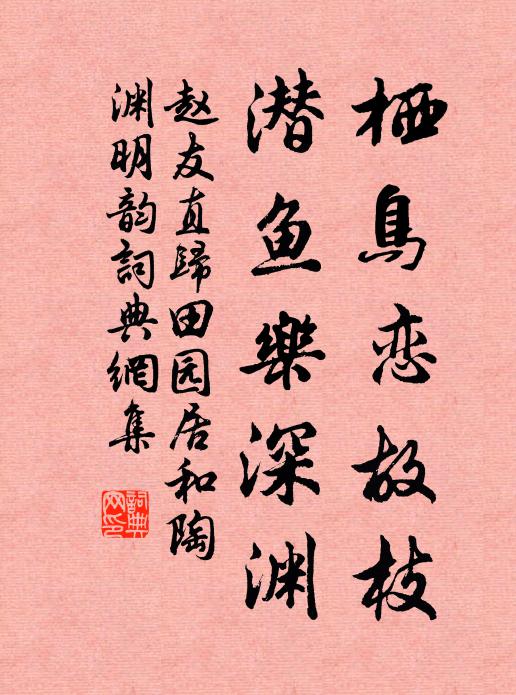 栖鳥恋故枝
潜鱼樂深渊
赵友直歸田园居和陶
渊明韵詞典網集
詞典网印